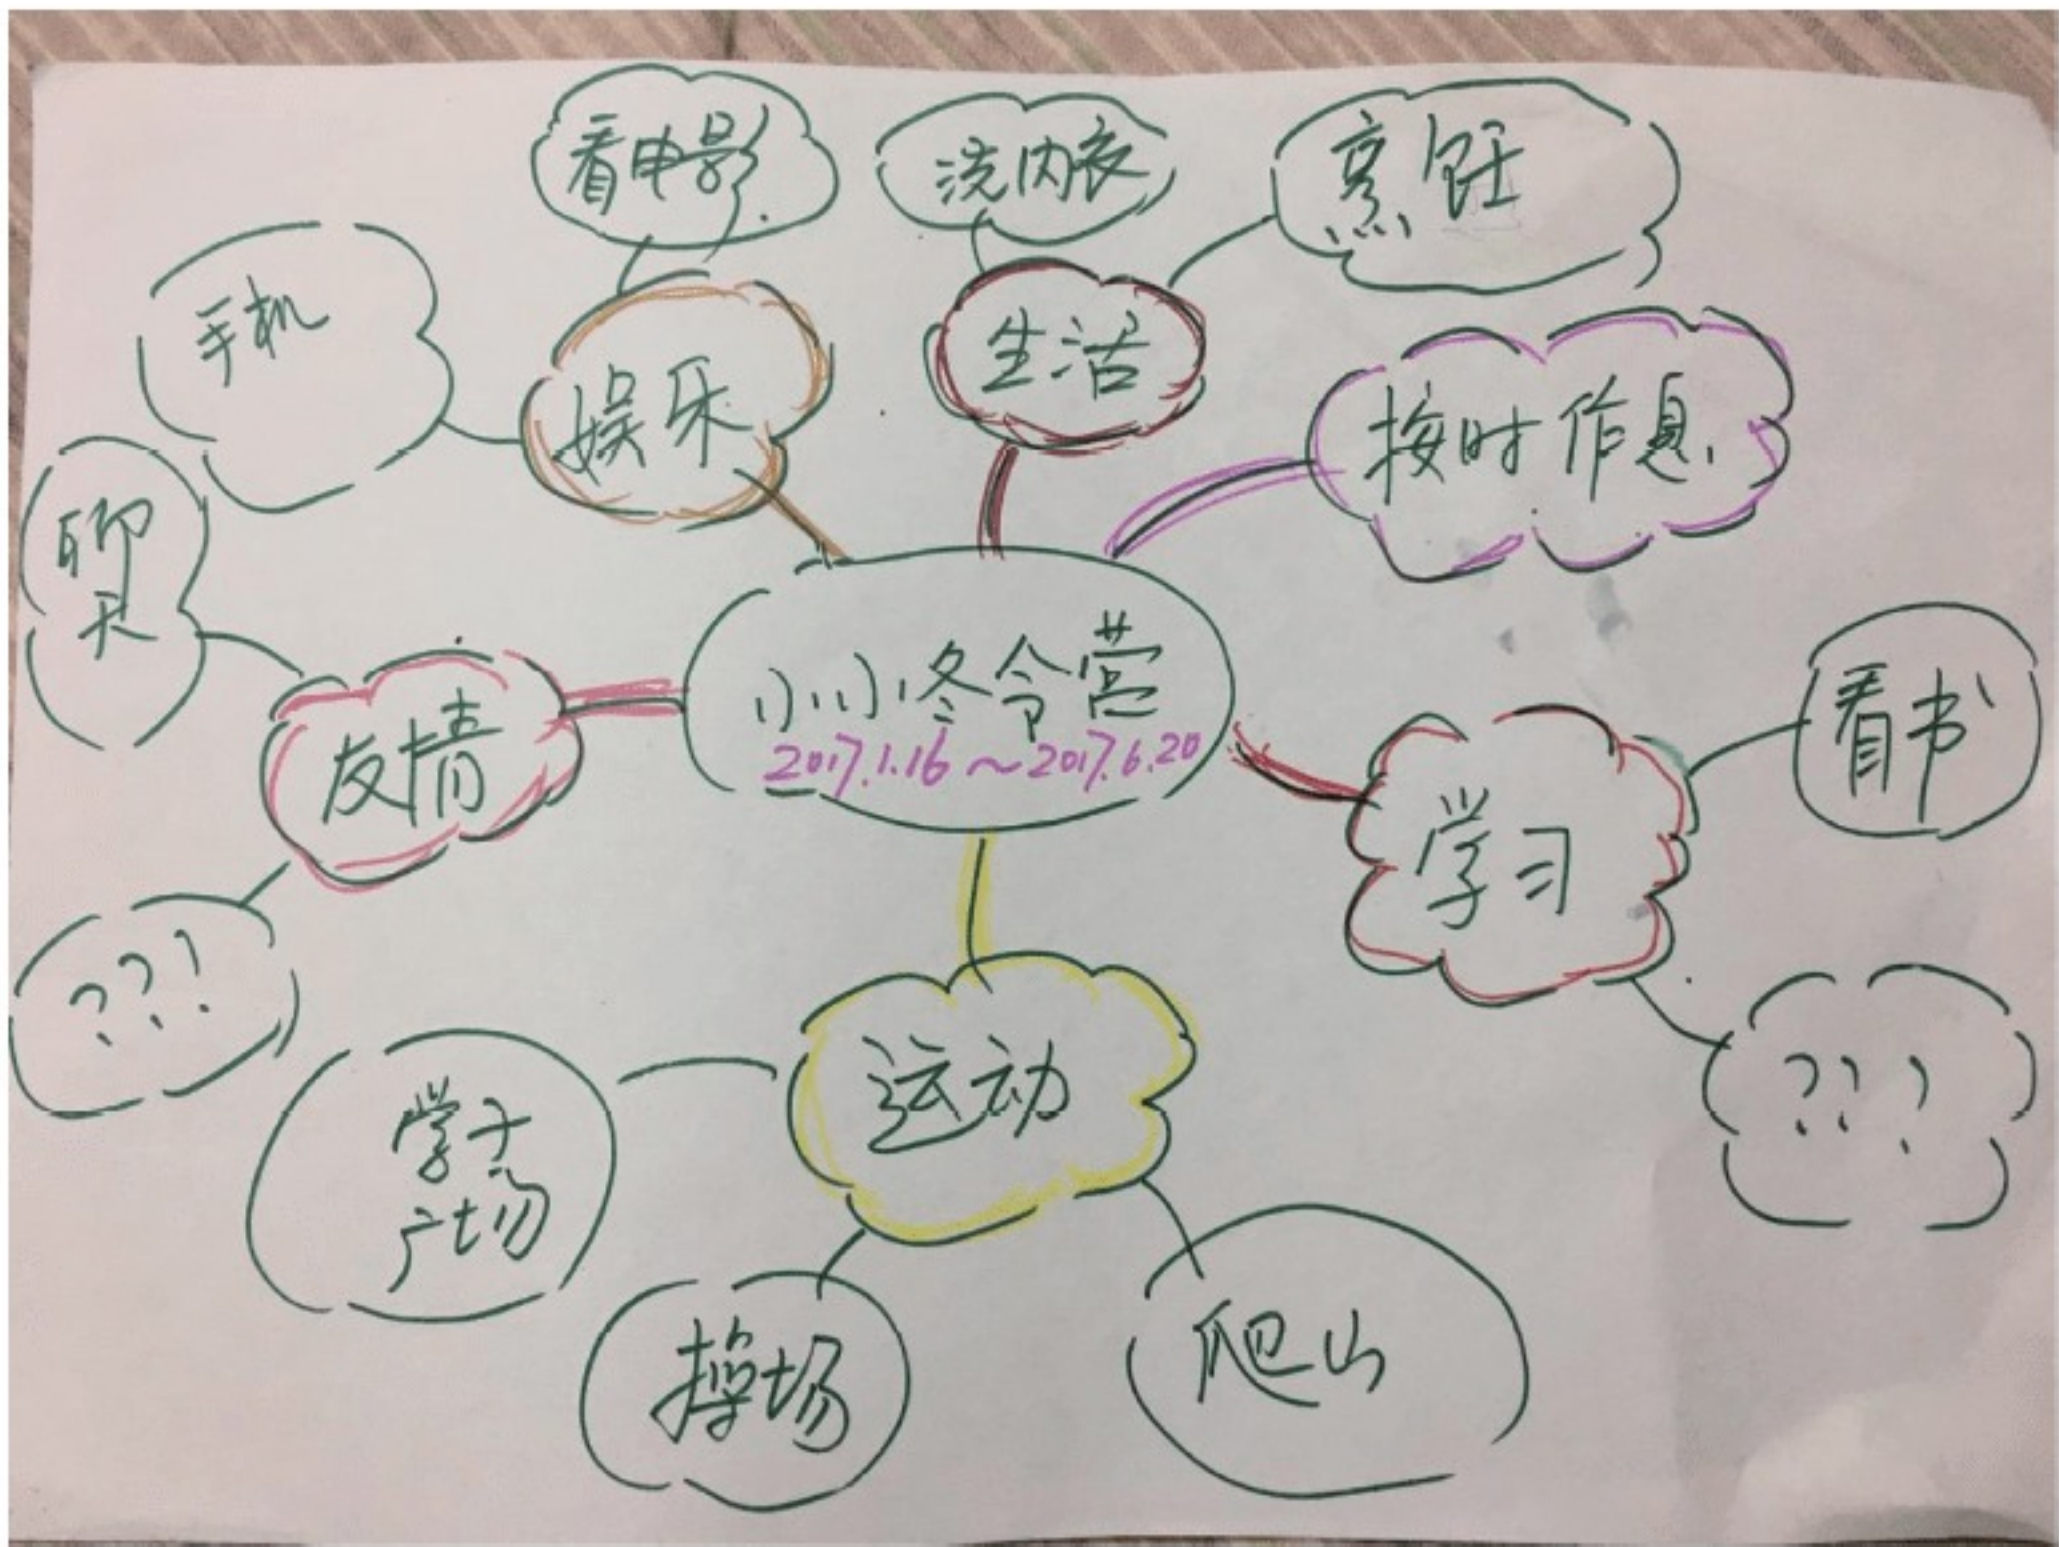 看电影
洗内衣
烹饪
手机
娱乐
生活
按时作息
聊
天
友情
小小冬令营
2017.1.16~2017.6.20
学习
看书
???
运动
???
学子
广场
操场
爬山